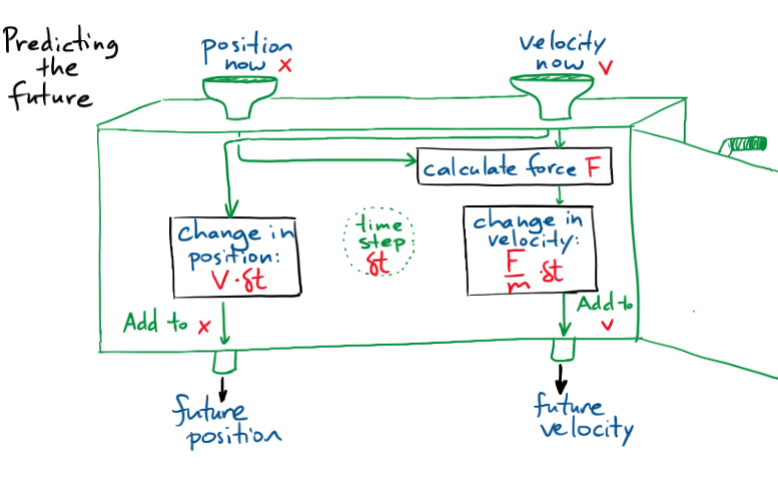 Predicting
the
future
position
now x
velocity
now v
calculate force F
change in
position:
V·δt
time
step
δt
change in
velocity:
F
m
·δt
Add to x
Add to
v
future
position
future
velocity